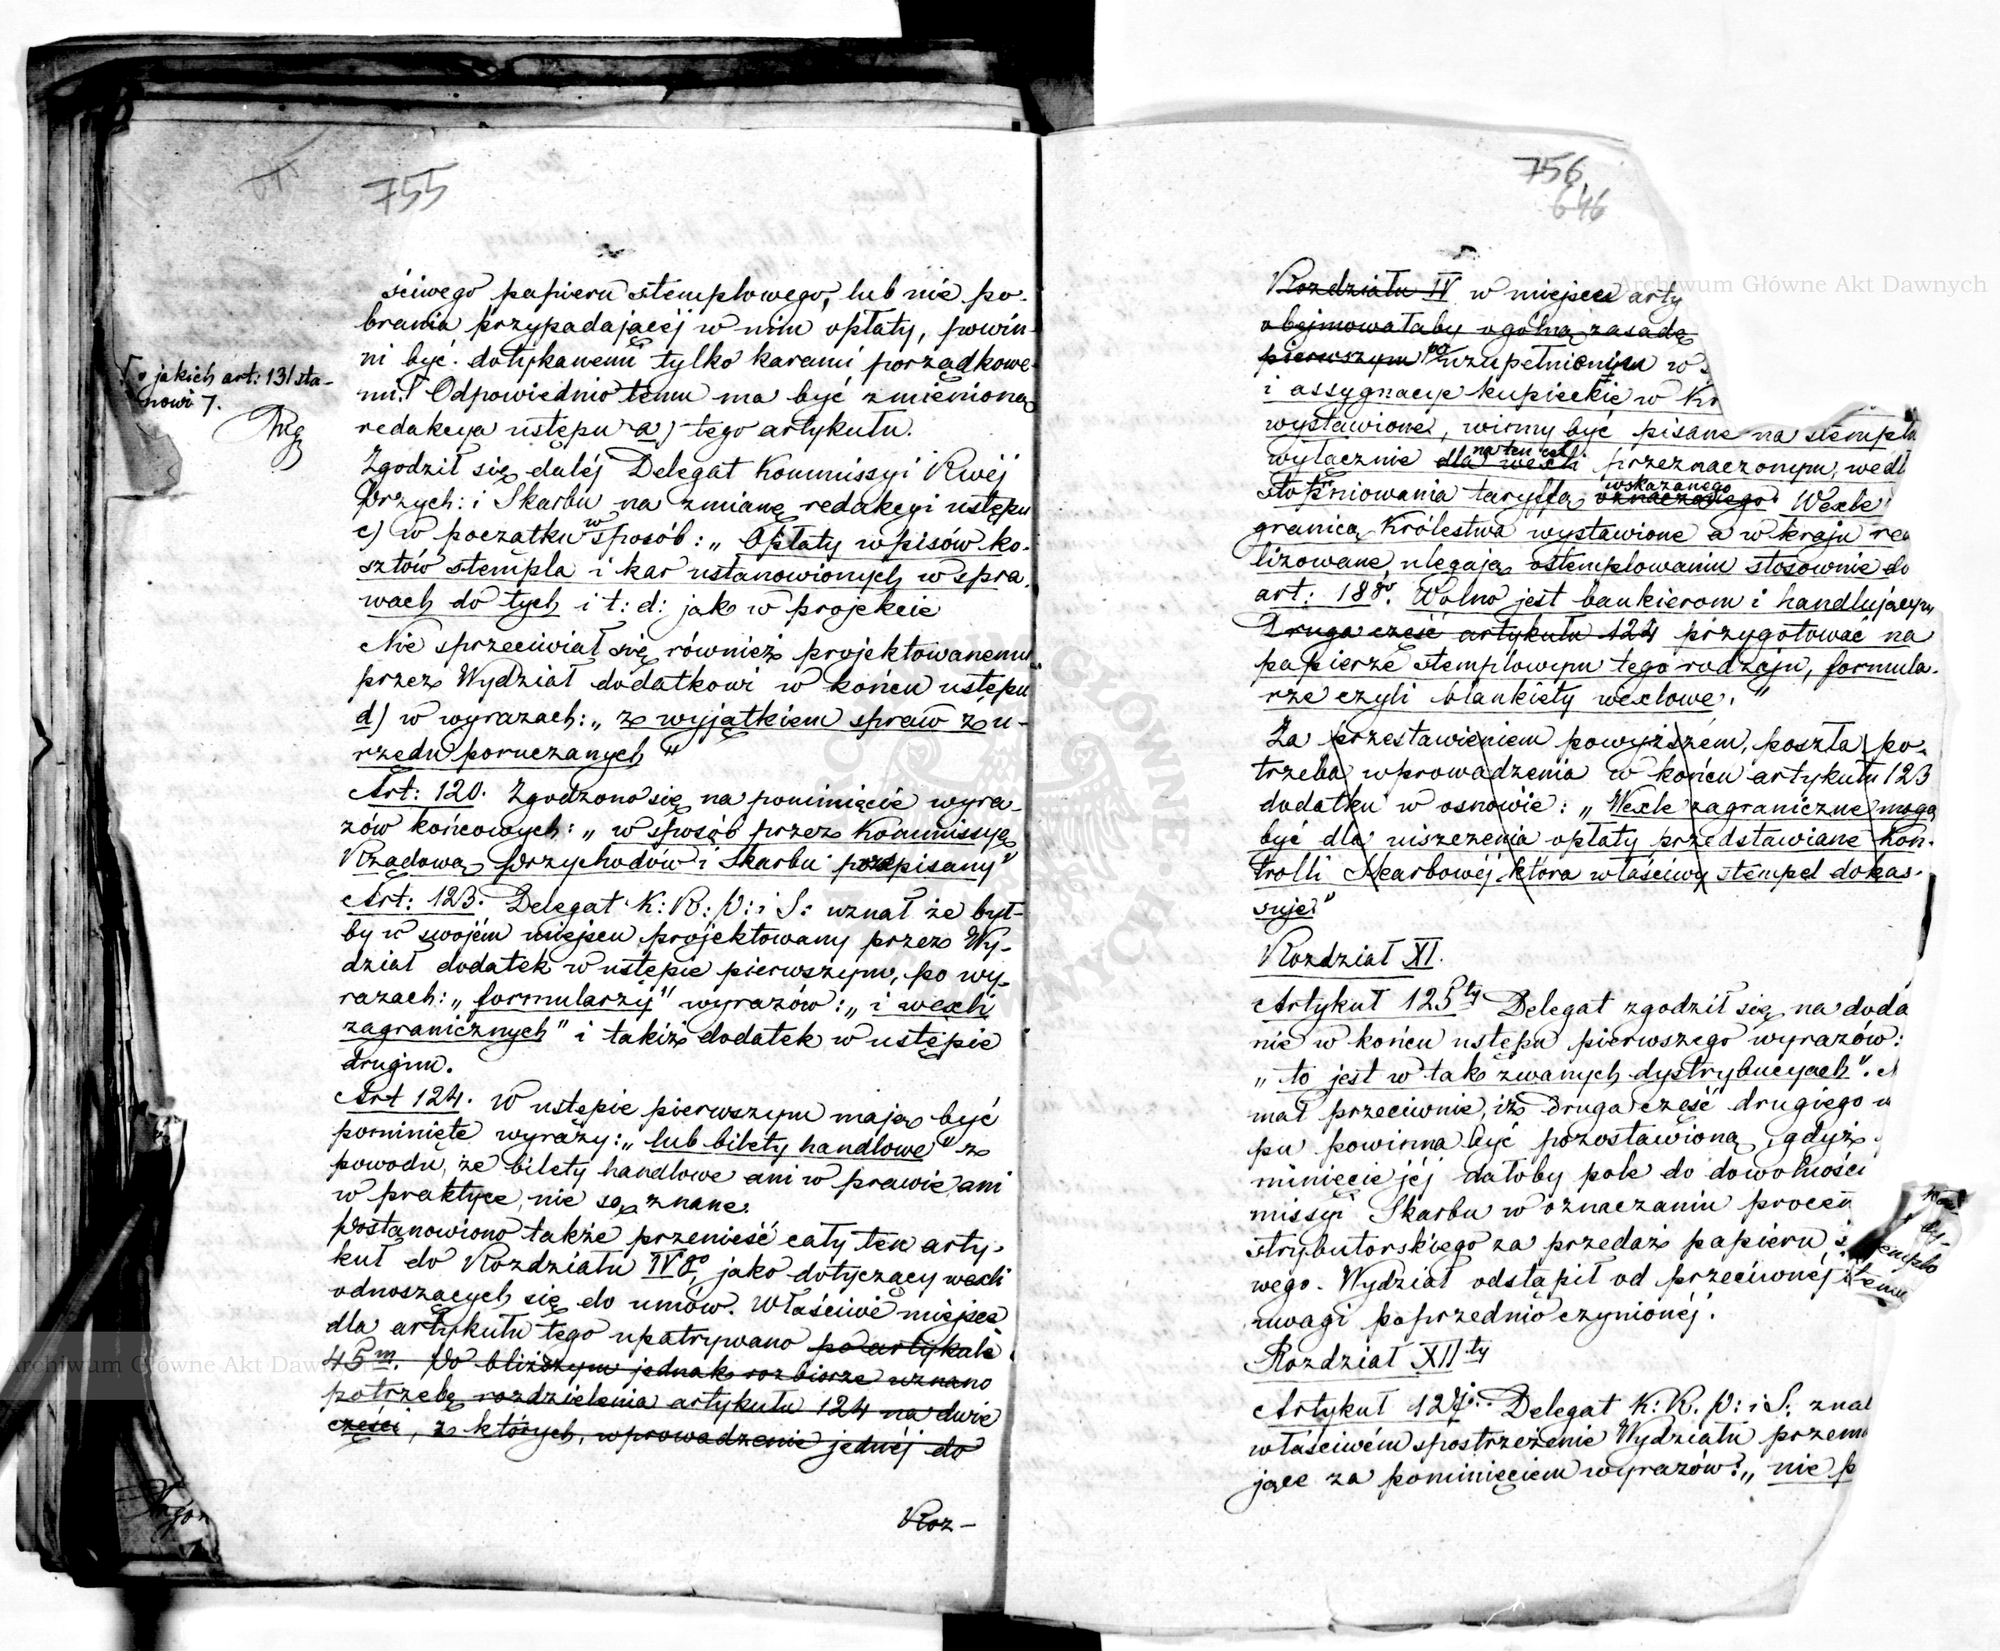 755
ściwego papieru stemplowego, lub nie po-
brania przypadającej w nim opłaty, powin-
ni być dotykanemi tylko karami porządkowe-
mi. Odpowiednio temu ma być zmienioną
redakcya ustępu a) tego artykułu.
Zgodził się daléj Delegat Kommissyi Rwéj
Przych: i Skarbu na zmianę redakcyi ustępu
c) w początku w sposób: „Opłaty wpisów ko-
sztów stempla i kar ustanowionych w spra-
wach do tych i t: d: jak w projekcie
Nie sprzeciwiał się również projektowanemu
przez Wydział dodatkowi w końcu ustępu
d) w wyrazach: „z wyjątkiem spraw z u-
rzędu poruczanych"
Art: 120. Zgodzono się na pominięcie wyra-
zów końcowych: „w sposób przez Kommissyę
Rządową Przychodów i Skarbu przepisany"
Art: 123. Delegat K: R: P: i S: uznał że był-
by w swojém miejscu projektowany przez Wy-
dział dodatek w ustępie pierwszym, po wy-
razach: „formularzy" wyrazów: „i wexli
zagranicznych" i takiż dodatek w ustępie
drugim.
Art 124. W ustępie pierwszym mają być
pominięte wyrazy: „lub bilety handlowe" z
powodu, że bilety handlowe ani w prawie, ani
w praktyce, nie są znane.
Postanowiono także przenieść cały ten arty-
kuł do Rozdziału IVgo, jako dotyczący wexli
odnoszących się do umów. Właściwe miejsce
dla artykułu tego upatrywano po artykule
45m. Po bliższym jednak rozbiorze uznano
potrzebę rozdzielenia artykułu 124 na dwie
części, z których, wprowadzenie jednéj do
Roz-
o jakich art: 131 sta-
nowi 7.
756
646
Rozdziału IV w miejsce arty
obejmowałaby ogólną zasadę
pierwszym po uzupełnieniu w
i assygnacye kupieckie w Kr
wystawione, winny być pisane na stempl
wyłącznie dla wexli na ten cel przeznaczonym, wedł
stopniowania taryffą oznaczonego wskazanego. Wexle
granicą Królestwa wystawione a w kraju rea
lizowane, ulegają ostemplowaniu stosownie do
art: 188go. Wolno jest bankierom i handlującym
Druga część artykułu 124 przygotować na
papierze stemplowym tego rodzaju, formula-
rze czyli blankiety wexlowe."
Za przestawieniem powyższém, poszła po-
trzeba wprowadzenia w końcu artykułu 123
dodatku w osnowie: „Wexle zagraniczne mogą
być dla uiszczenia opłaty przedstawiane Kon-
trolli Skarbowéj która właściwy stempel dokas-
suje."
Rozdział XI.
Artykuł 125ty Delegat zgodził się na doda
nie w końcu ustępu pierwszego wyrazów:
„to jest w tak zwanych dystrybucyach".
mał przeciwnie, iż druga część drugiego u
pu powinna być pozostawioną, gdyż
minięcie jéj dałoby pole do dowolności
missyi Skarbu w oznaczaniu procen
strybutorskiego za przedaż papieru stemplo
wego. Wydział odstąpił od przeciwnéj temu
uwagi poprzednio czynionéj.
Rozdział XIIty
Artykuł 127. Delegat K: R. P: i S: znal
właściwém spostrzeżenie Wydziału przem
jące za pominięciem wyrazów: „nie p
Archiwum Główne Akt Dawnych
Archiwum Główne Akt Dawnych